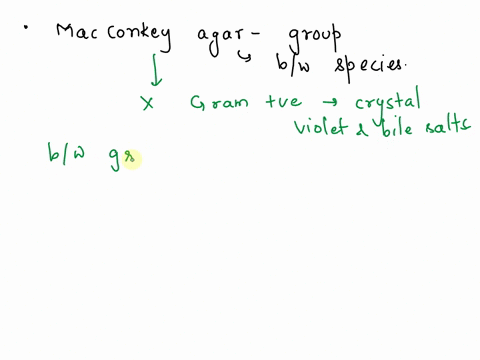 • MacConkey agar - group
↳ b/w species.
↓
x Gram +ve → crystal
violet & bile salts
b/w gr